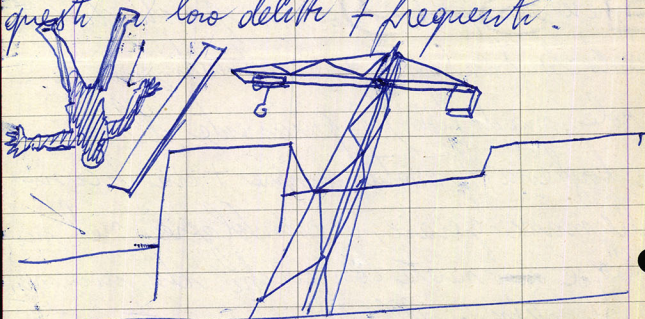 questi i loro delitti + frequenti.